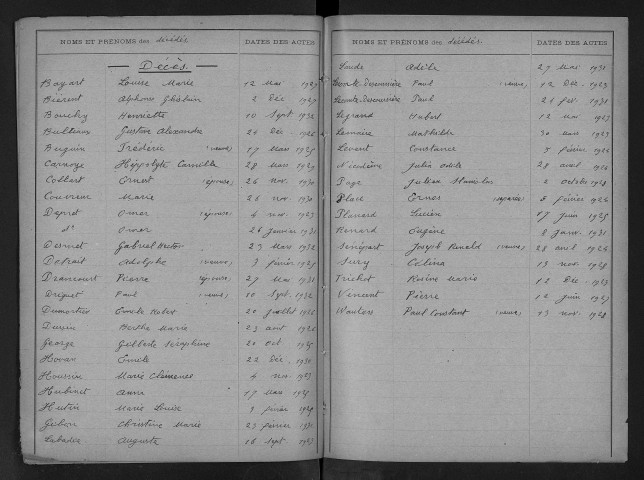 NOMS ET PRÉNOMS des décédés DATES DES ACTES
Décès.
Bayart Louise Marie 12 Mai 1929
Biérent Alphonse Ghislain 2 Déc 1929
Bouchy Henriette 10 Sept 1932
Bulteau Gustave Alexandre 24 Déc 1926
Buguin Frédéric (veuve) 17 Mars 1925
Carnoye Hippolyte Camille 28 Mars 1929
Collert Ernest (épouse) 26 nov. 1930
Couvreur Marie 26 nov. 1930
Depret Omer (épouse) 4 nov. 1923
d° Omer 26 Janvier 1931
Desruet Gabriel Hector 23 Mars 1932
Detrait Adolphe (veuve) 3 février 1925
Drancourt Pierre (épouse) 27 Mai 1931
Dréguet Paul (veuve) 10 Sept. 1932
Dumortier Émile Hubert 20 Juillet 1926
Dupin Berthe Marie 23 août 1926
George Gilberte Séraphine 20 oct 1925
Hovar Émile 22 Déc. 1930
Houssin Marie Clémence 4 nov. 1923
Hubinet Anna 17 Mars 1925
Hutin Marie Louise 9 février 1929
Jubon Christine Marie 23 février 1930
Labadie Auguste 16 Sept 1923
NOMS ET PRÉNOMS des décédés. DATES DES ACTES
Laude Adèle 27 Mai 1931
Lecomte-Descouvrière Paul (veuve) 12 Déc. 1923
Lecomte-Descouvrière Paul 21 fév. 1931
Legrand Hubert 12 mai 1923
Lemaire Mathilde 30 mars 1923
Levent Constance 7 février 1926
Nicodème Julia Odile 28 avril 1926
Page Julien Stanislas 2 octobre 1928
Place Ernest (séparée) 8 février 1926
Planard Lucien 17 Juin 1925
Renard Eugène 8 Janv. 1931
Sénépart Joseph Renald (veuve) 28 avril 1926
Sury Célina 13 nov. 1928
Trichot Rosine Marie 12 Déc. 1923
Vincent Pierre 12 Juin 1927
Wauters Paul Constant (veuve) 13 nov. 1928